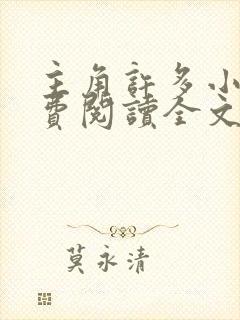 主角許多小
費閱讀全文
莫永清